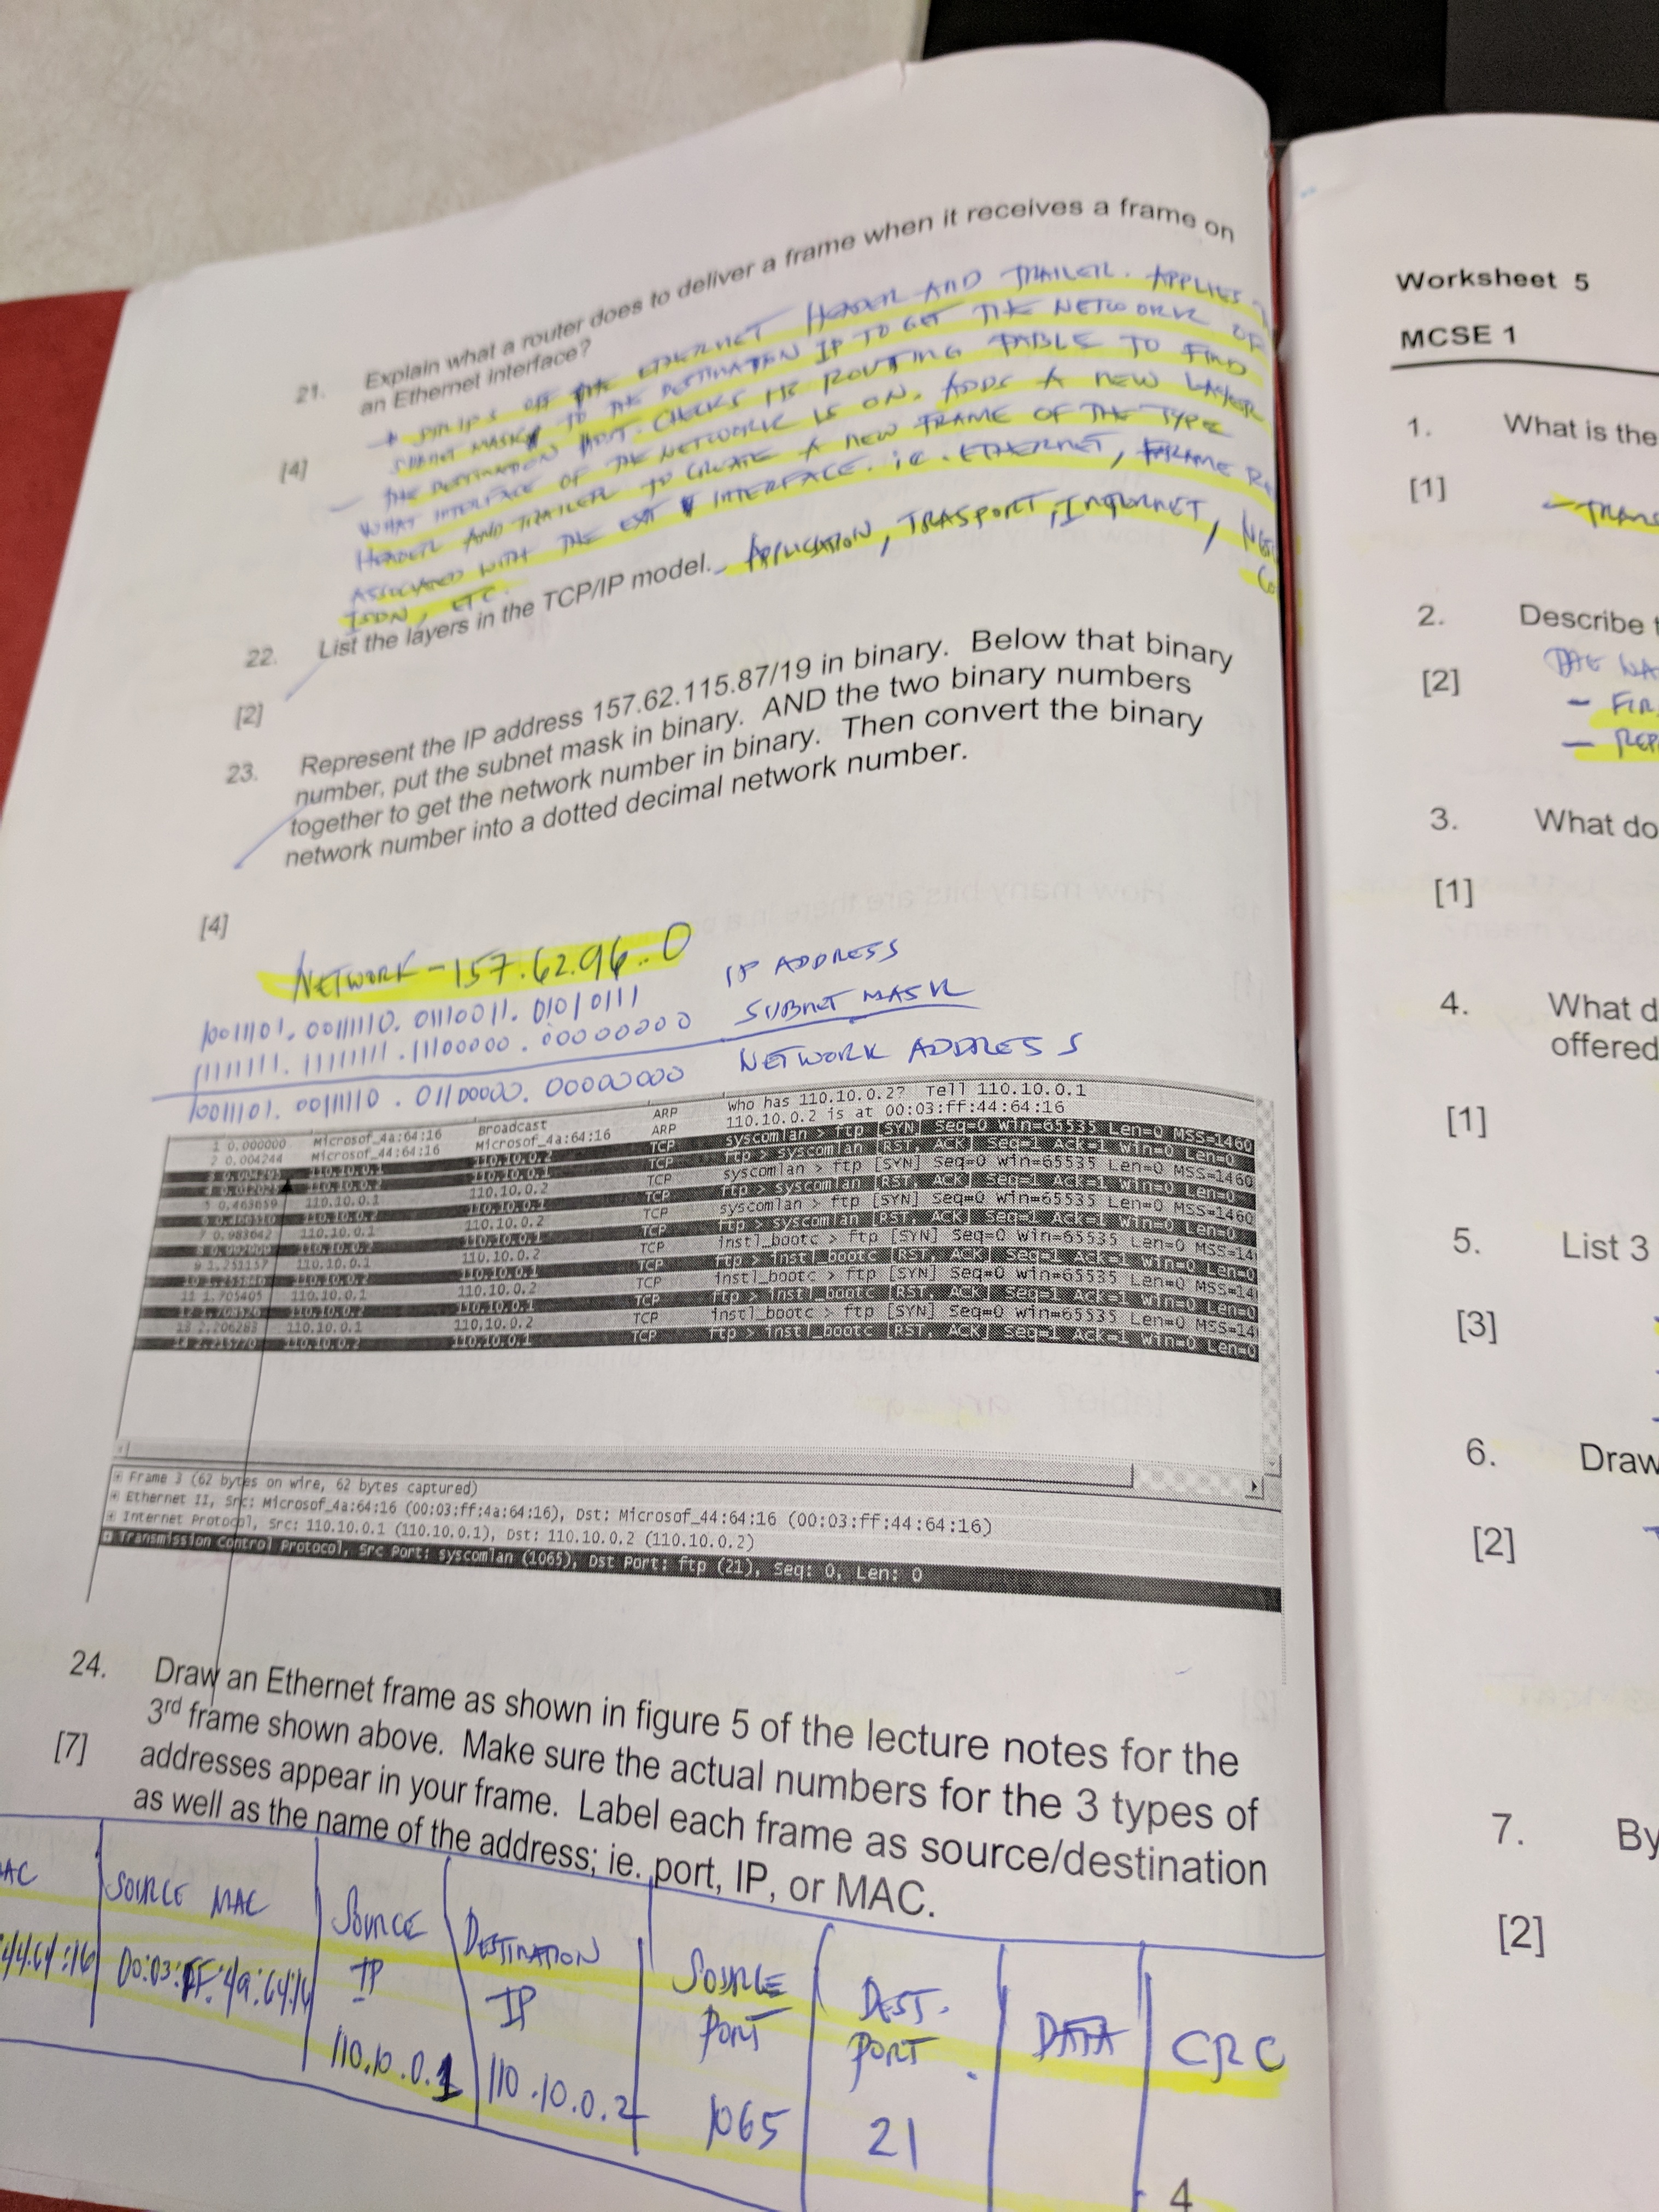 21. Explain what a router does to deliver a frame when it receives a frame on
an Ethernet interface?
[4]
STRIPS OFF THE ETHERNET HEADER AND TRAILER. APPLIES
SUBNET MASK TO THE DESTINATION IP TO GET THE NETWORK OF
THE DESTINATION HOST. CHECKS ITS ROUTING TABLE TO FIND
WHAT INTERFACE OF THE NETWORK IS ON. ADDS A NEW LAYER
HEADER AND TRAILER TO CREATE A NEW FRAME OF THE TYPE
ASSOCIATED WITH THE EXIT INTERFACE. ie. ETHERNET, FRAME RE
ISDN, ETC.
22. List the layers in the TCP/IP model. APPLICATION, TRASPORT, INTERNET,
[2]
23. Represent the IP address 157.62.115.87/19 in binary. Below that binary
number, put the subnet mask in binary. AND the two binary numbers
together to get the network number in binary. Then convert the binary
network number into a dotted decimal network number.
[4]
NETWORK - 157.62.96.0
10011101. 00111110. 01110011. 01010111 IP ADDRESS
11111111. 11111111. 11100000. 00000000 SUBNET MASK
10011101. 00111110. 01100000. 00000000 NETWORK ADDRESS
1 0.000000 Microsof_4a:64:16 Broadcast ARP Who has 110.10.0.2? Tell 110.10.0.1
2 0.004244 Microsof_44:64:16 Microsof_4a:64:16 ARP 110.10.0.2 is at 00:03:ff:44:64:16
3 0.004295 110.10.0.1 110.10.0.2 TCP syscomlan > ftp [SYN] Seq=0 Win=65535 Len=0 MSS=1460
4 110.10.0.2 110.10.0.1 TCP ftp > syscomlan [RST, ACK] Seq=1 Ack=1 Win=0 Len=0
5 0.463659 110.10.0.1 110.10.0.2 TCP syscomlan > ftp [SYN] Seq=0 Win=65535 Len=0 MSS=1460
6 110.10.0.2 110.10.0.1 TCP ftp > syscomlan [RST, ACK] Seq=1 Ack=1 Win=0 Len=0
7 0.983642 110.10.0.1 110.10.0.2 TCP syscomlan > ftp [SYN] Seq=0 Win=65535 Len=0 MSS=1460
8 110.10.0.2 110.10.0.1 TCP ftp > syscomlan [RST, ACK] Seq=1 Ack=1 Win=0 Len=0
9 1.251157 110.10.0.1 110.10.0.2 TCP instl_bootc > ftp [SYN] Seq=0 Win=65535 Len=0 MSS=14
10 110.10.0.2 110.10.0.1 TCP ftp > instl_bootc [RST, ACK] Seq=1 Ack=1 Win=0 Len=0
11 1.705405 110.10.0.1 110.10.0.2 TCP instl_bootc > ftp [SYN] Seq=0 Win=65535 Len=0 MSS=14
12 110.10.0.2 110.10.0.1 TCP ftp > instl_bootc [RST, ACK] Seq=1 Ack=1 Win=0 Len=0
13 2.206283 110.10.0.1 110.10.0.2 TCP instl_bootc > ftp [SYN] Seq=0 Win=65535 Len=0 MSS=14
14 110.10.0.2 110.10.0.1 TCP ftp > instl_bootc [RST, ACK] Seq=1 Ack=1 Win=0 Len=0
Frame 3 (62 bytes on wire, 62 bytes captured)
Ethernet II, Src: Microsof_4a:64:16 (00:03:ff:4a:64:16), Dst: Microsof_44:64:16 (00:03:ff:44:64:16)
Internet Protocol, Src: 110.10.0.1 (110.10.0.1), Dst: 110.10.0.2 (110.10.0.2)
Transmission Control Protocol, Src Port: syscomlan (1065), Dst Port: ftp (21), Seq: 0, Len: 0
24. Draw an Ethernet frame as shown in figure 5 of the lecture notes for the
3rd frame shown above. Make sure the actual numbers for the 3 types of
[7] addresses appear in your frame. Label each frame as source/destination
as well as the name of the address; ie. port, IP, or MAC.
AC
44:64:16
SOURCE MAC
00:03:FF:4a:64:16
SOURCE
IP
110.10.0.1
DESTINATION
IP
110.10.0.2
SOURCE
PORT
1065
DEST.
PORT
21
DATA
CRC
4
Worksheet 5
MCSE 1
1. What is the
[1]
TRANS
2. Describe
[2]
- FIR
- REP
3. What do
[1]
4. What d
offered
[1]
5. List 3
[3]
6. Draw
[2]
7. By
[2]